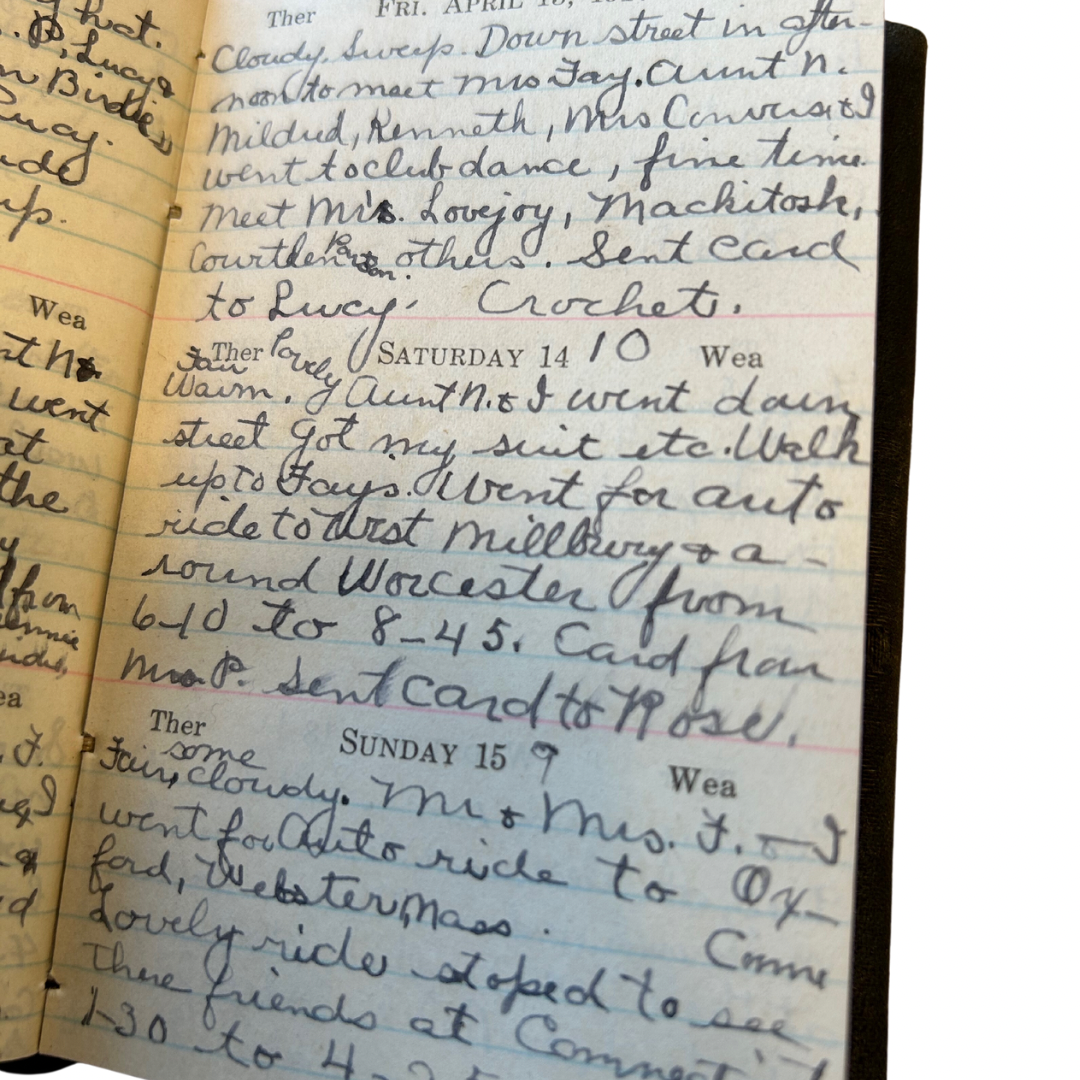 hot.
P, Lucy &
Birdie
Lucy.
up.
Wea
went
at
the
from
Ther FRI. APRIL 13,
Cloudy. Sweep. Down street in after-
noon to meet Mrs Fay. Aunt N.
Mildred, Kenneth, Mrs Convers & I
went to club dance, fine time
meet Mrs. Lovejoy, Mackitosh,
Courtlen others. Sent card
to Lucy. Crochet.
Ther SATURDAY 14 10 Wea
Fair lovely
Warm. Aunt N. & I went down
street got my suit etc. Walk
up to Fays. Went for auto
ride to West Millbury & a-
round Worcester from
6-10 to 8-45. Card from
Mrs. P. Sent card to Rose.
Ther SUNDAY 15 9 Wea
some
Fair, cloudy. Mr & Mrs. F. & I
went for Auto ride to Ox-
ford, Webster, Mass. Conne
Lovely ride stoped to see
there friends at
1-30 to 4-